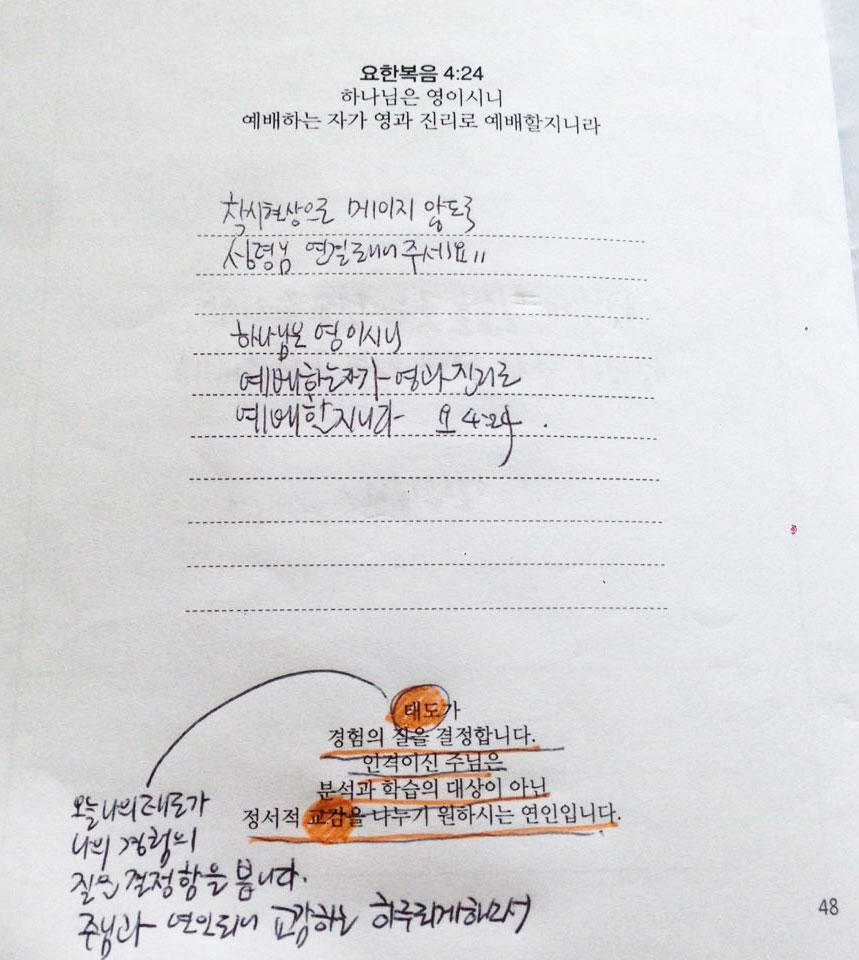 요한복음 4:24
하나님은 영이시니
예배하는 자가 영과 진리로 예배할지니라
착시현상으로 메이지 않도록
성령님 주세요
하나님은 영이시니
예배하는자가 영과 진리로
예배할지니라 요 4:24.
태도가
경험의 질을 결정합니다.
인격이신 주님은
분석과 학습의 대상이 아닌
정서적 교감을 나누기 원하시는 연인입니다.
오늘 나의 태도가
나의 경험의
질을 결정함을 봅니다.
주님과 연인되니 교감하는
48